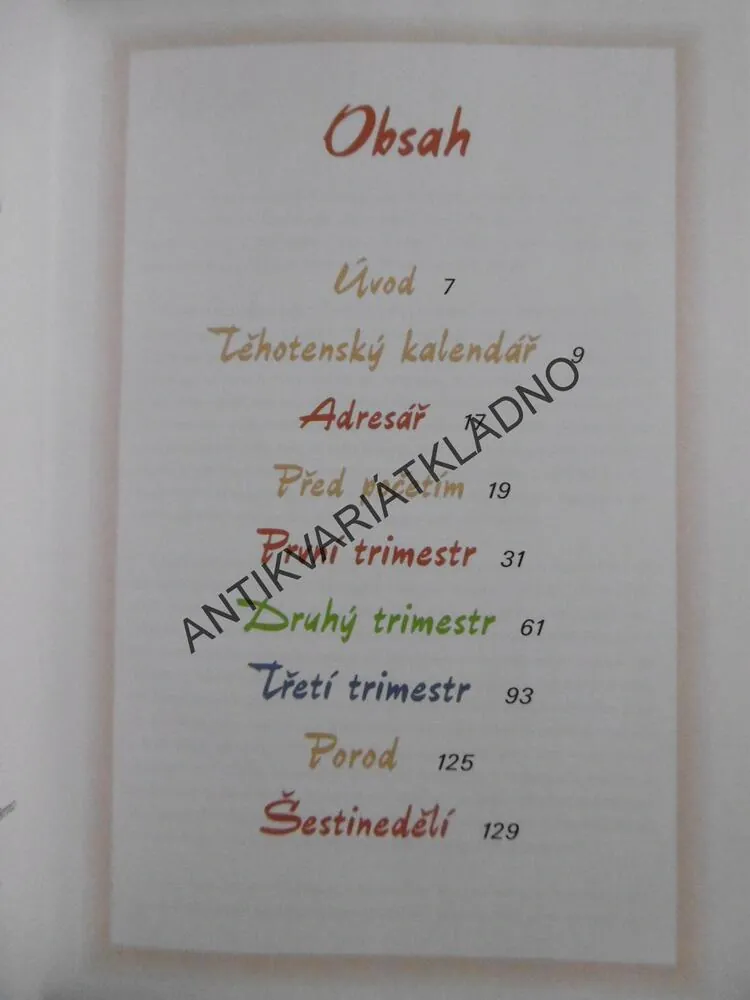 Obsah
Úvod 7
Těhotenský kalendář 9
Adresář 17
Před početím 19
První trimestr 31
Druhý trimestr 61
Třetí trimestr 93
Porod 125
Šestinedělí 129
ANTIKVARIÁTKLADNO